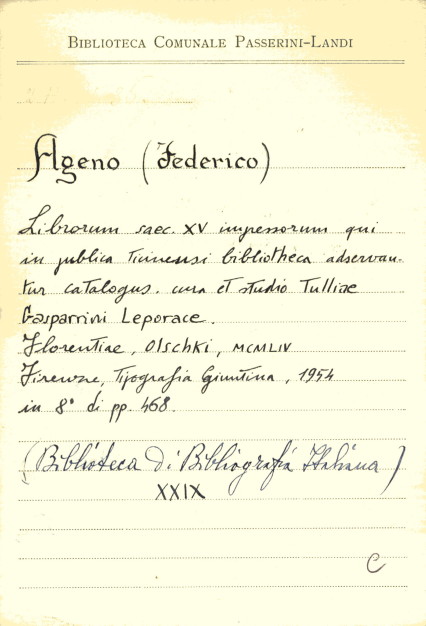 BIBLIOTECA COMUNALE PASSERINI-LANDI
Ageno (Federico)
Librorum saec. XV impressorum qui
in publica Ticinensi bibliotheca adservan-
tur catalogus. cura et studio Tulliae
Gasparrini Leporace.
Florentiae, Olschki, MCMLIV
Firenze, Tipografia Giuntina, 1954
in 8° di pp. 468.
(Biblioteca di Bibliografia Italiana)
XXIX
C